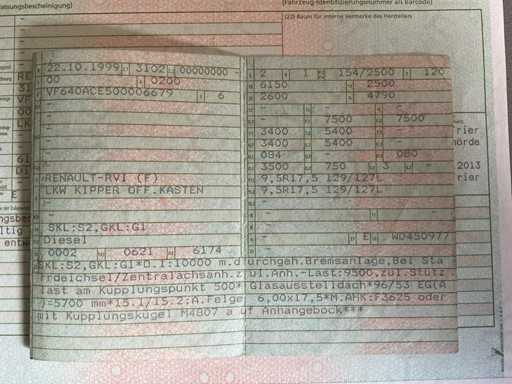 assungsbescheinigung)
(Fahrzeug-Identifizierungsnummer als Barcode)
(22) Raum für interne Vermerke des Herstellers
22.10.1999 3102 00000000 -
2 1 154/2500 120
00 0200
6150 - 2500
VF640ACE500006679 6
2600 - 4790
- -
- -
- 7500 7500
3400 5400 - -
3400 5400 - -
084 - - 080
3500 750 3 -
2013
RENAULT-RVI (F)
9,5R17,5 129/127L
LKW KIPPER OFF.KASTEN
9,5R17,5 129/127L
-
- -
SKL:S2,GKL:G1
Diesel
E WD450977
0002 0621 6174
-
SKL:S2,GKL:G1*O.1:10000 m.durchgeh.Bremsanlage,Bei Sta
rrdeichsel/Zentralachsanh.zul.Anh.-Last:9500,zul.Stütz
last am Kupplungspunkt 500*Glasausstelldach*96/53 EG(A
)=5700 mm*15.1/15.2:A.Felge 6,00x17,5*M.AHK:F3625 oder
mit Kupplungskugel M4807 auf Anhängebock***